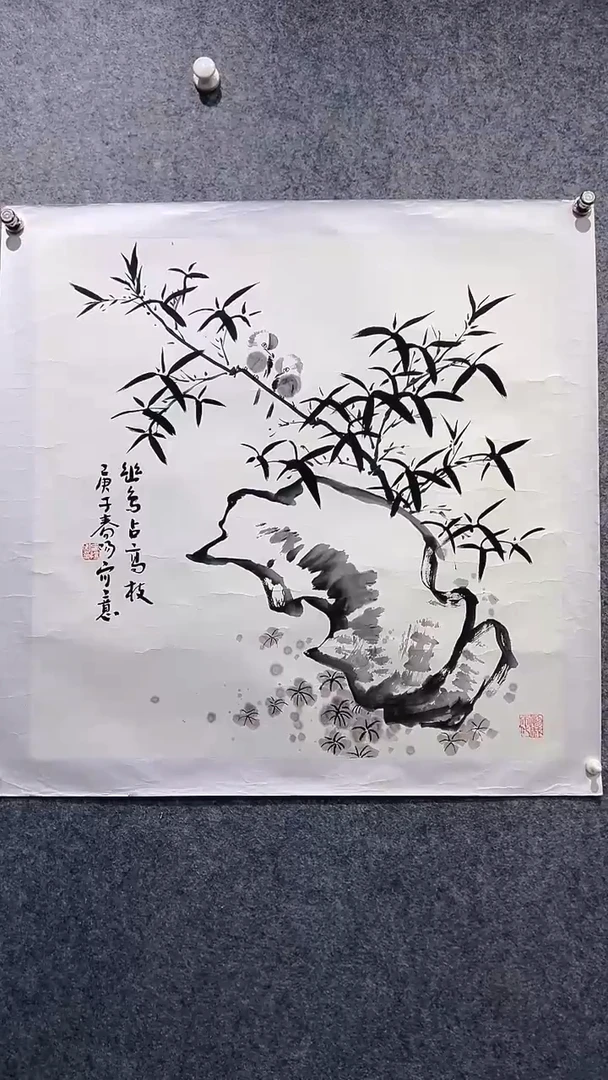 幽鸟占高枝
庚子春写意